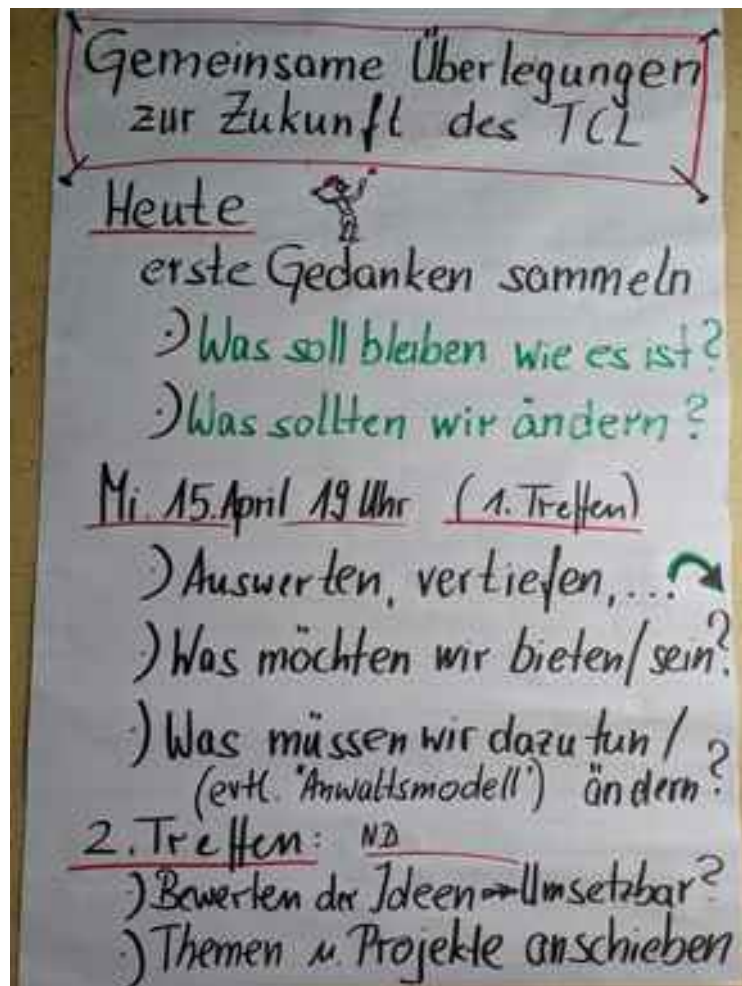 Gemeinsame Überlegungen
zur Zukunft des TCL
Heute
erste Gedanken sammeln
·) Was soll bleiben wie es ist?
·) Was sollten wir ändern?
Mi. 15. April 19 Uhr (1. Treffen)
·) Auswerten, vertiefen, ...
·) Was möchten wir bieten/sein?
·) Was müssen wir dazu tun/
(evtl. "Anwaltsmodell") ändern?
2. Treffen: ND
·) Bewerten der Ideen → Umsetzbar?
·) Themen u. Projekte anschieben